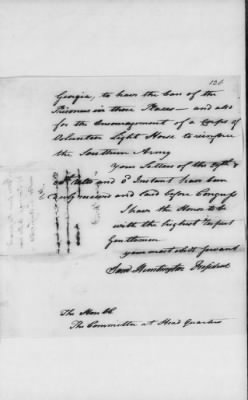 126
Georgia, to have the Care of the
Prisoners in those Places — and also
for the Encouragement of a Corps of
Volunteer Light Horse to reinforce
the Southern Army
Your Letters of the
and Instant have been
received and laid before Congress
I have the Honor to be
with the highest respect
Gentlemen
your most obdt servant
Saml Huntington President
The Honble
The Committee at Head Quarters